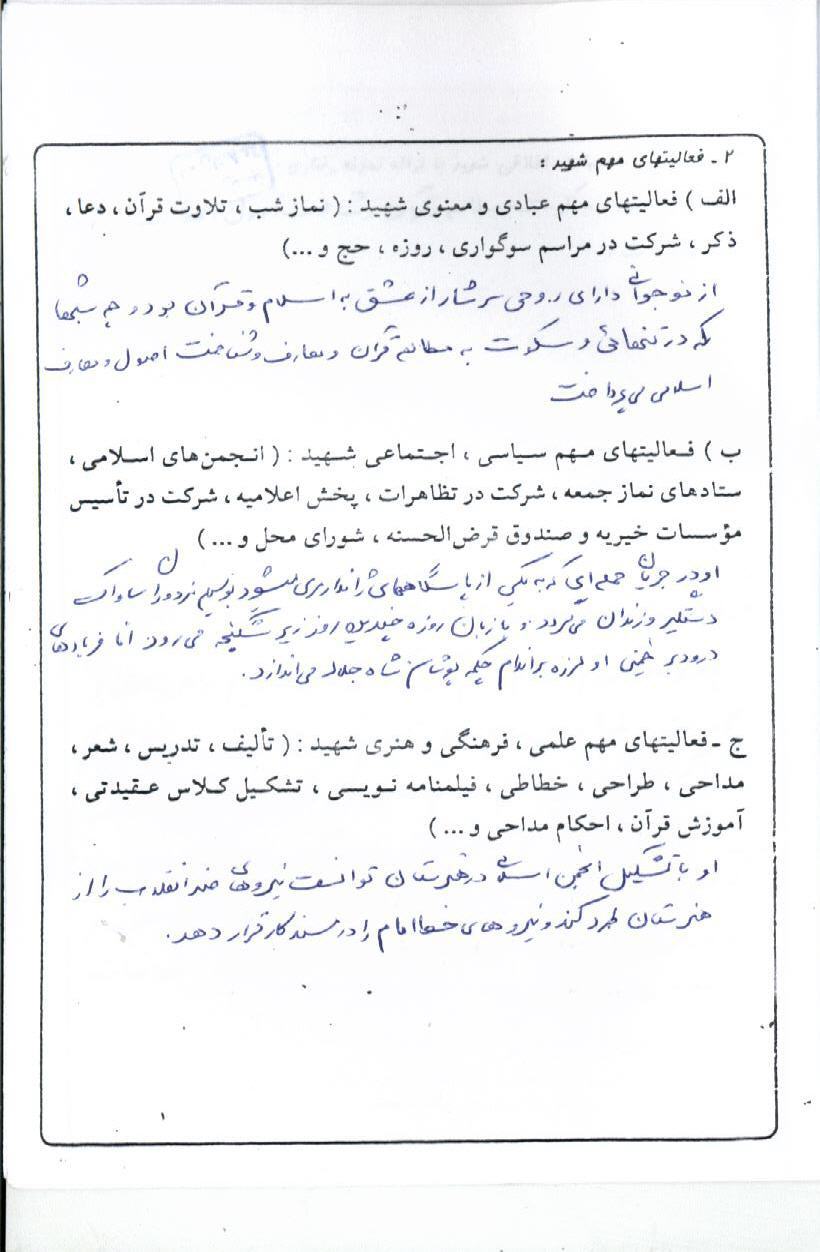 ۲ ـ فعالیتهای مهم شهید :
الف ) فعالیتهای مهم عبادی و معنوی شهید : ( نماز شب ، تلاوت قرآن ، دعا ،
ذکر ، شرکت در مراسم سوگواری ، روزه ، حج و ...)
از نوجوانی دارای روحی سرشار از عشق به اسلام و قرآن بود و چه شبها
که در تنهائی و سکوت به مطالعه قرآن و معارف و شناخت اصول و معارف
اسلامی می پرداخت
ب ) فعالیتهای مهم سیاسی ، اجتماعی شهید : ( انجمن‌های اسلامی ،
ستادهای نماز جمعه ، شرکت در تظاهرات ، پخش اعلامیه ، شرکت در تأسیس
مؤسسات خیریه و صندوق قرض‌الحسنه ، شورای محل و ... )
او در جریان حمله‌ای که به یکی از پاسگاههای ژاندارمری میشود ساواک
دستگیر و زندان می‌گردد و با زبان روزه چندین روز زیر شکنجه می‌رود اما فریادهای
درود بر خمینی او لرزه بر اندام چکمه پوشان شاه جلاد می‌اندازد.
ج ـ فعالیتهای مهم علمی ، فرهنگی و هنری شهید : ( تألیف ، تدریس ، شعر ،
مداحی ، طراحی ، خطاطی ، فیلمنامه نویسی ، تشکیل کلاس عقیدتی ،
آموزش قرآن ، احکام مداحی و ... )
او با تشکیل انجمن اسلامی در هنرستان توانست نیروهای ضد انقلاب را از
هنرستان طرد کند و نیروهای خط امام را در مسند کار قرار دهد.